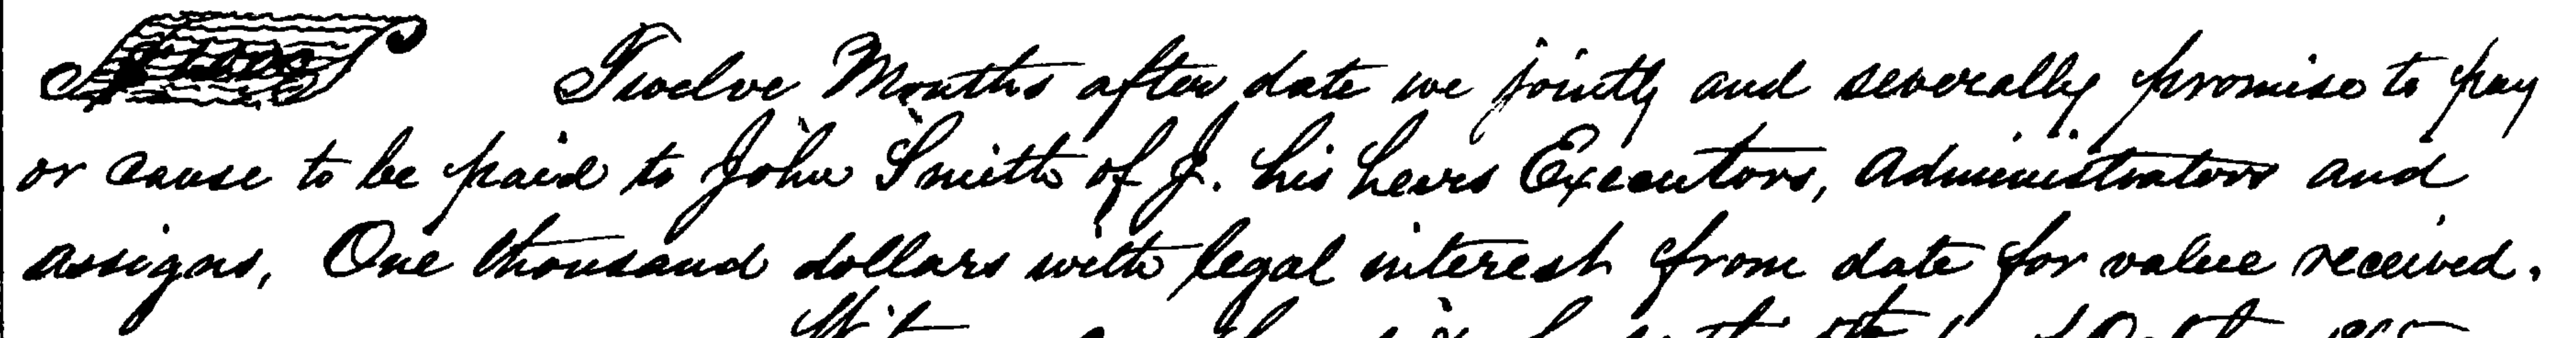 Twelve Months after date we jointly and severally promise to pay
or cause to be paid to John Smith of J. his heirs Executors, Administrators and
assigns, One thousand dollars with legal interest from date for value received.